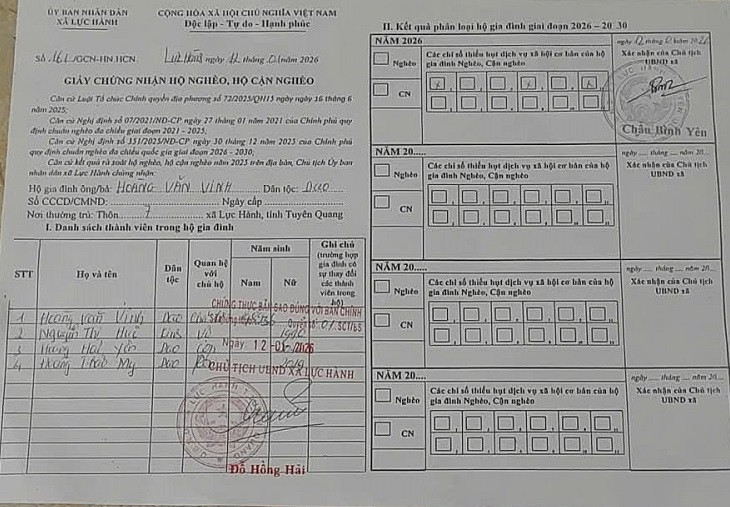 ỦY BAN NHÂN DÂN
XÃ LỰC HÀNH
CỘNG HÒA XÃ HỘI CHỦ NGHĨA VIỆT NAM
Độc lập - Tự do - Hạnh phúc
Số /GCN-HN.HCN
Lực Hành ngày 12 tháng 01 năm 2026
GIẤY CHỨNG NHẬN HỘ NGHÈO, HỘ CẬN NGHÈO
Căn cứ Luật Tổ chức Chính quyền địa phương số 72/2025/QH15 ngày ngày 16 tháng 6
năm 2025;
Căn cứ Nghị định số 07/2021/NĐ-CP ngày 27 tháng 01 năm 2021 của Chính phủ
quy định chuẩn nghèo đa chiều giai đoạn 2021 - 2025;
Căn cứ Nghị định số 351/2025/NĐ-CP ngày 30 tháng 12 năm 2025 của Chính phủ
quy định chuẩn nghèo đa chiều quốc gia giai đoạn 2026 - 2030;
Căn cứ kết quả rà soát hộ nghèo, hộ cận nghèo năm 2025 trên địa bàn, Chủ tịch Ủy ban
nhân dân xã Lực Hành chứng nhận:
Hộ gia đình ông/bà: HOÀNG VĂN VINH Dân tộc: Dao
Số CCCD/CMND: Ngày cấp
Nơi thường trú: Thôn 7 xã Lực Hành, tỉnh Tuyên Quang
I. Danh sách thành viên trong hộ gia đình
STT Họ và tên Dân tộc Quan hệ với chủ hộ Năm sinh Nam Nữ Ghi chú (trường hợp gia đình có sự thay đổi các thành viên trong hộ)
1 Hoàng Văn Vinh Dao
2 Nguyễn Thị Huế Vợ 1990
3 Hoàng Hải Yến Dao Con
4 Hoàng Thảo My Dao
CHỨNG THỰC BẢN SAO ĐÚNG VỚI BẢN CHÍNH
Quyển số: 01 SCT/BS
Ngày 12-01-2026
CHỦ TỊCH UBND XÃ LỰC HÀNH
Đỗ Hồng Hải
II. Kết quả phân loại hộ gia đình giai đoạn 2026 – 2030
NĂM 2026
Nghèo
CN
Các chỉ số thiếu hụt dịch vụ xã hội cơ bản của hộ
gia đình Nghèo, Cận nghèo
ngày 12 tháng 01 năm 2026
Xác nhận của Chủ tịch
UBND xã
Châu Bình Yên
NĂM 20.....
Nghèo
CN
Các chỉ số thiếu hụt dịch vụ xã hội cơ bản của hộ
gia đình Nghèo, Cận nghèo
ngày .... tháng .... năm 20...
Xác nhận của Chủ tịch
UBND xã
NĂM 20.....
Nghèo
CN
Các chỉ số thiếu hụt dịch vụ xã hội cơ bản của hộ
gia đình Nghèo, Cận nghèo
ngày .... tháng .... năm 20...
Xác nhận của Chủ tịch
UBND xã
NĂM 20.....
Nghèo
CN
Các chỉ số thiếu hụt dịch vụ xã hội cơ bản của hộ
gia đình Nghèo, Cận nghèo
ngày .... tháng .... năm 20...
Xác nhận của Chủ tịch
UBND xã